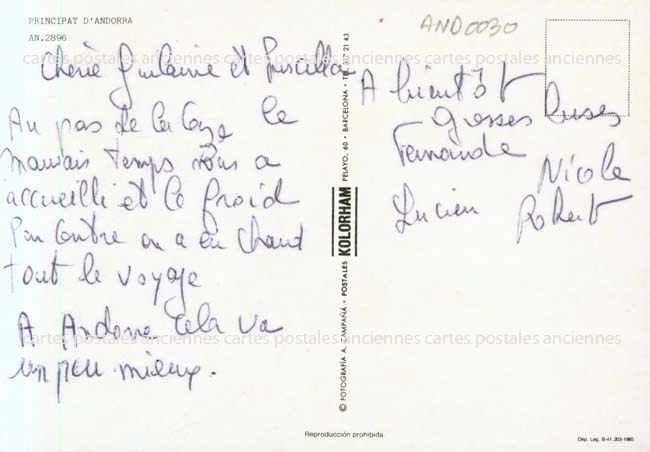 PRINCIPAT D'ANDORRA
AN.2896
AND0030
Cherie Guilaine et Priscilla
Au pas de la Case le
mauvais temps nous a
accueilli et le froid
Par contre on a eu chaud
tout le voyage
A Andorre cela va
un peu mieux.
A bientôt
grosses bises
Fernande
Nicole
Lucien
Robert
© FOTOGRAFÍA A. CAMPAÑÁ - POSTALES KOLORHAM PELAYO, 60 - BARCELONA - TEL. 317 21 43
cartes postales anciennes cartes postales anciennes cartes postales anciennes
cartes postales anciennes cartes postales anciennes cartes postales anciennes
Reproducción prohibida
Dep. Leg. B-41.203-1985